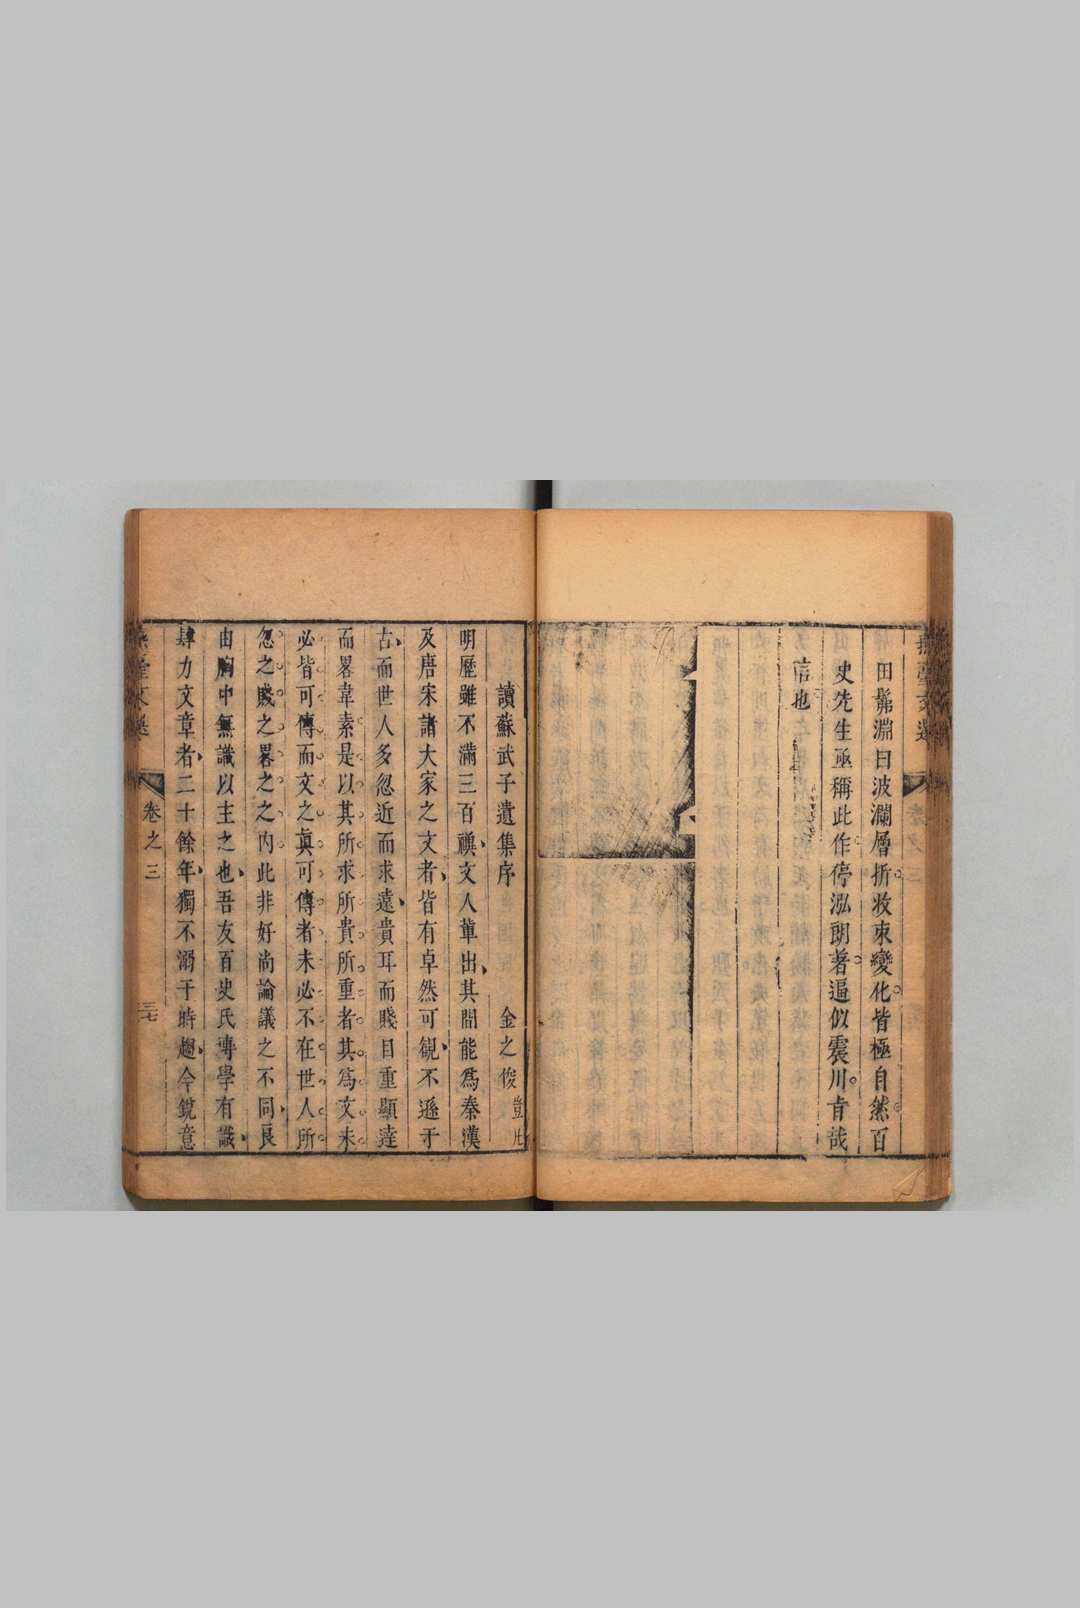 田髴淵曰波瀾層折收束變化皆極自然百
史先生亟稱此作停泓朗著逼似震川肯哉
信也
讀蘇武子遺集序　金之俊豈凡
明歷雖不滿三百禩文人輩出其間能為秦漢
及唐宋諸大家之文者皆有卓然可觀不遜于
古而世人多忽近而求遠貴耳而賤目重顯達
而畧韋素是以其所求所貴所重者其為文未
必皆可傳而文之眞可傳者未必不在世人所
忽之賤之畧之之内此非好尚論議之不同良
由胸中無識以主之也吾友百史氏專學有識
肆力文章者二十餘年獨不溺于時趨今銳意
卷之三
三七